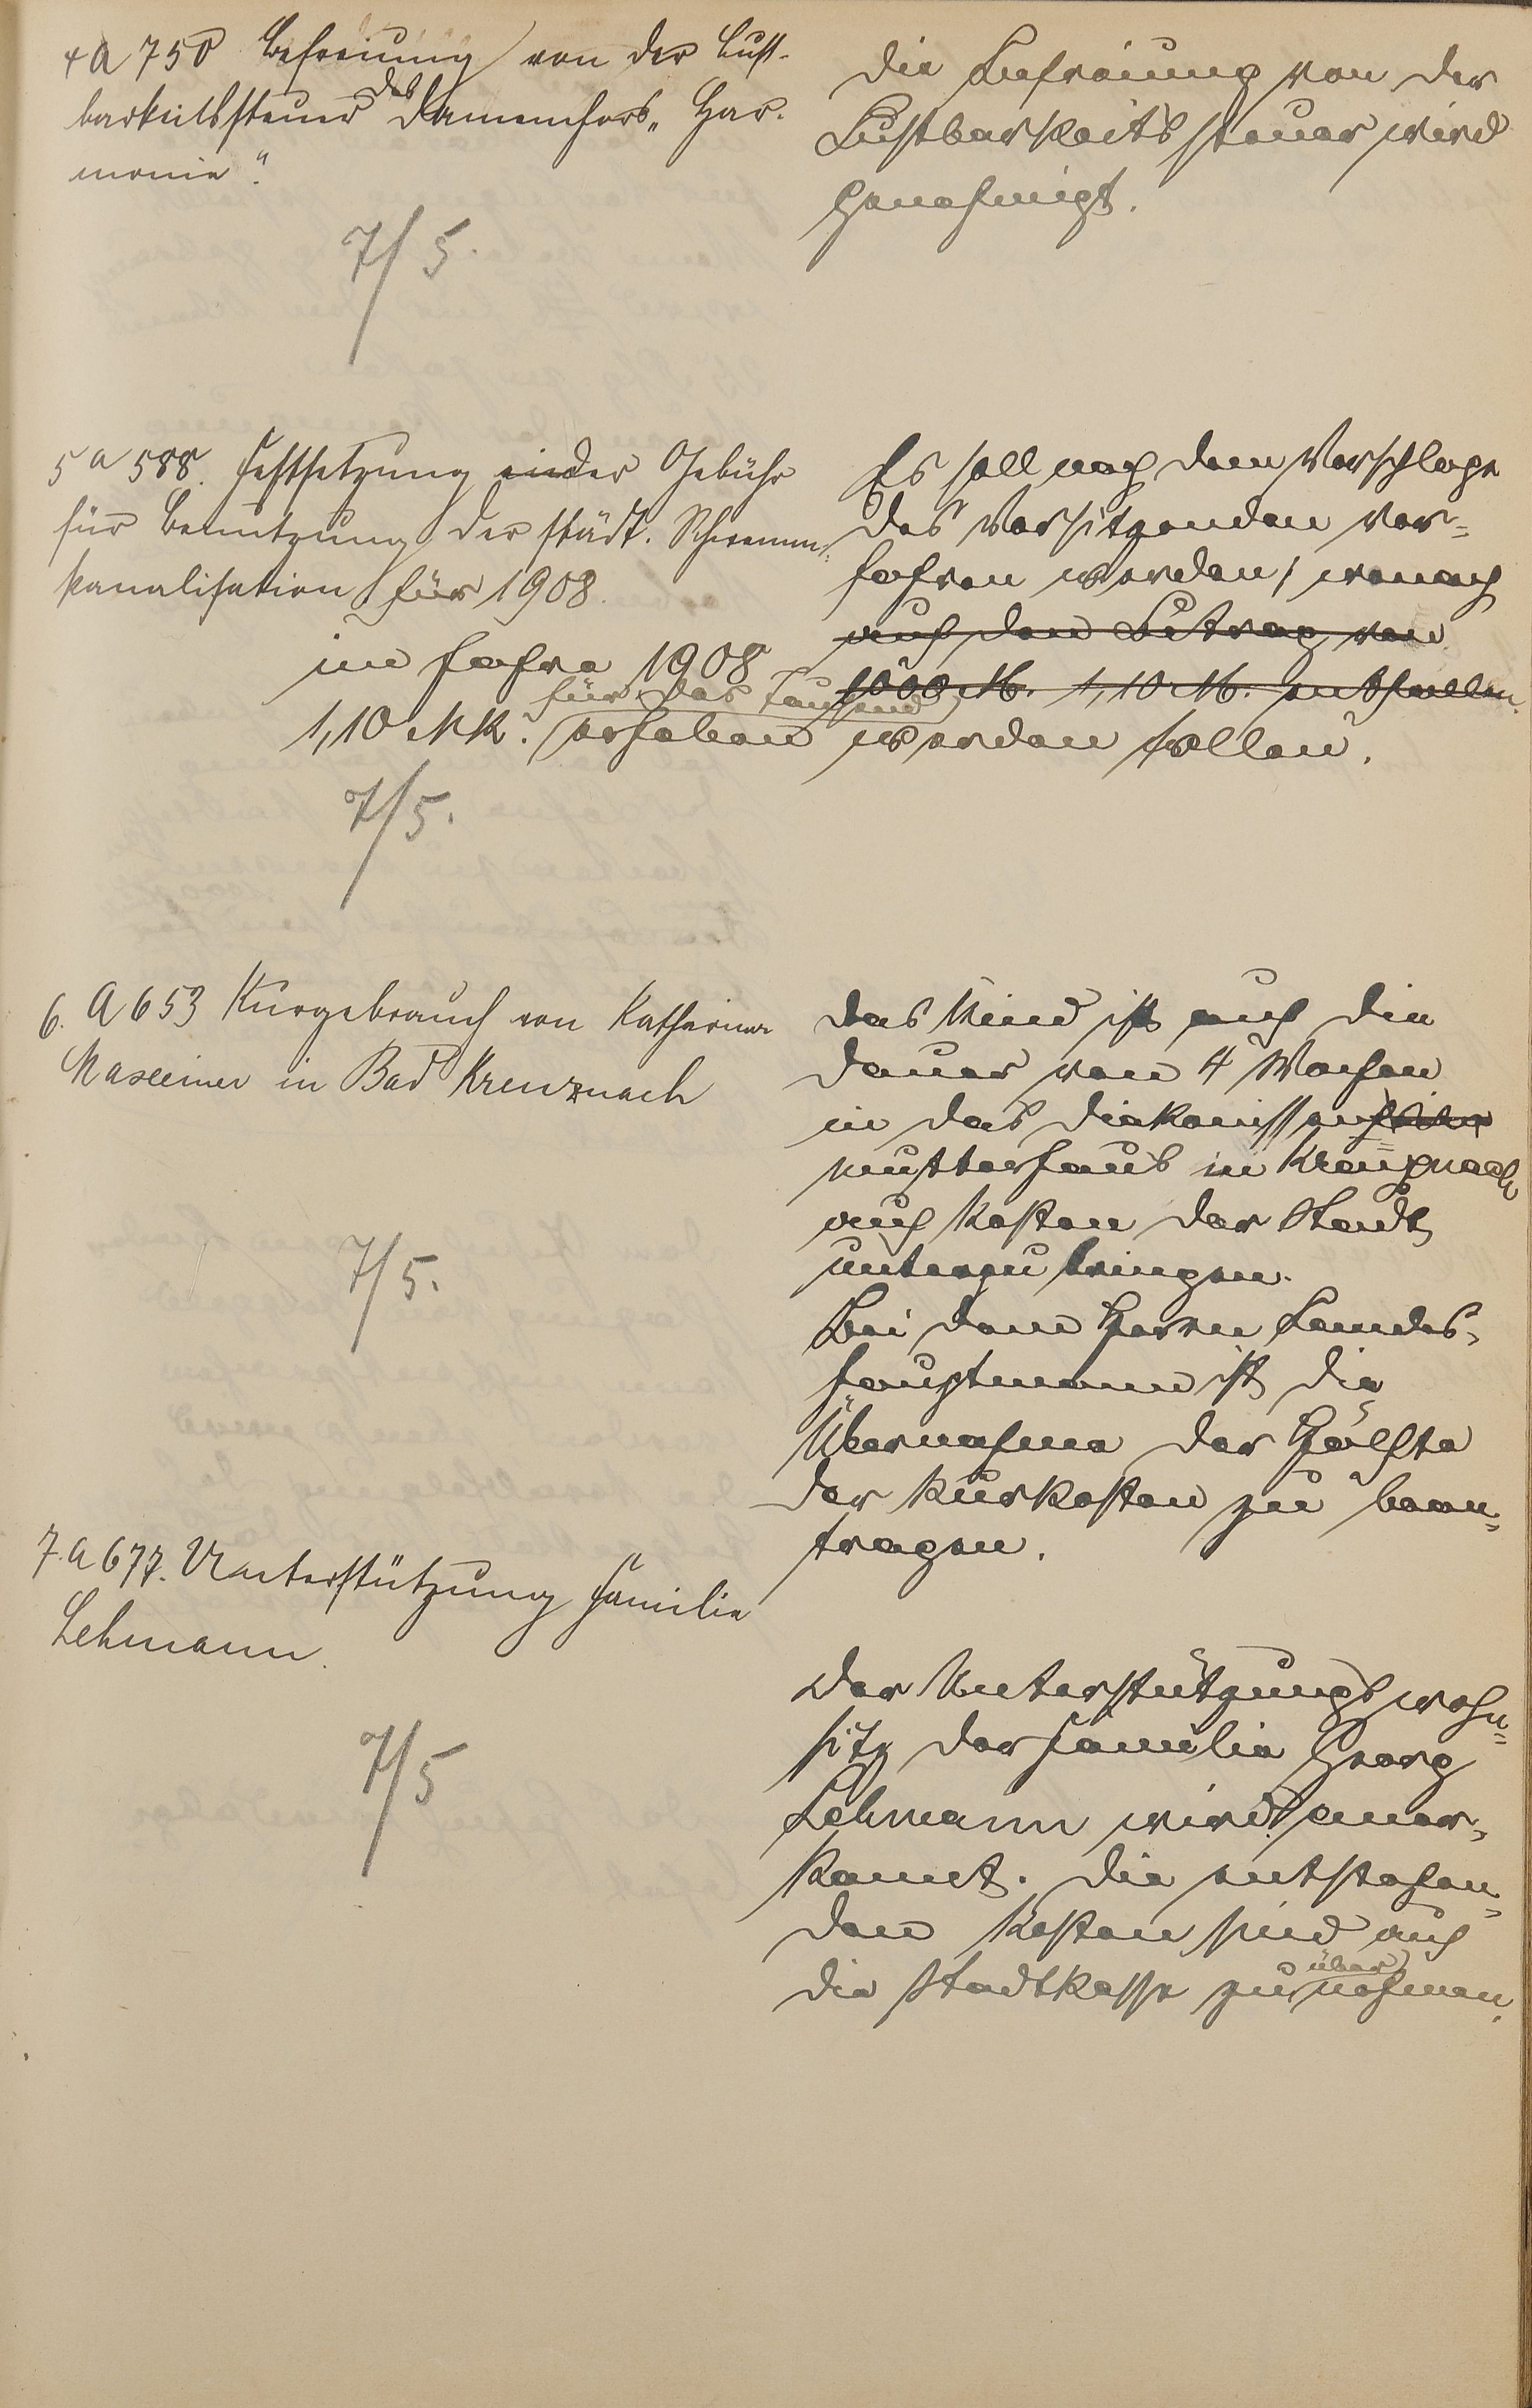 4 A 750 Befreiung von der Lust-
barkeitssteuer des Damenchors „Har-
monie".
7/5.
Die Befreiung von der
Lustbarkeitssteuer wird
genehmigt.
5 A 588. Festsetzung einder Gebühr
für Benutzung der städt. Schwemm-
kanalisation für 1908.
7/5.
Es soll nach dem Vorschlage
des Vorsitzenden ver-
fahren werden, wonach
auf den Betrag von
1000 M. 1,10 M. entfallen.
im Jahre 1908
für das Tausend
1,10 Mk. erhoben werden sollen.
6. A 653 Kurgebrauch von Katharina
Maxeiner in Bad Kreuznach
7/5.
Das Kind ist auf die
Dauer von 4 Wochen
in das Diakonissen
mutterhaus in Kreuznach
auf Kosten der Stadt
unterzubringen.
Bei dem Herrn Landes-
hauptmann ist die
Übernahme der Hälfte
der Kurkosten zu bean-
tragen.
7. A 677. Unterstützung Familie
Lehmann.
7/5
Der Unterstützungswohn-
sitz der Familie Georg
Lehmann wird aner-
kannt. Die entstehen-
den Kosten sind auf
die Stadtkasse zu übernehmen.